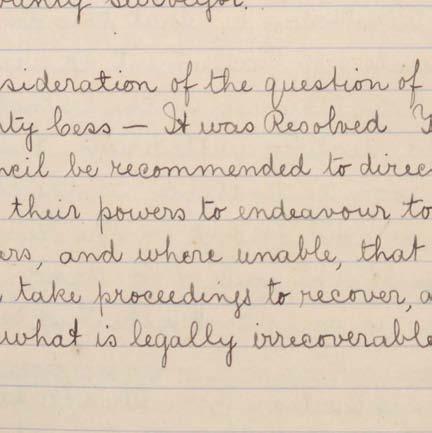 ounty Surveyor.
sideration of the question of
ty Cess — It was Resolved
ncil be recommended to direc
their powers to endeavour to
ers, and where unable, that
take proceedings to recover, a
what is legally irrecoverable